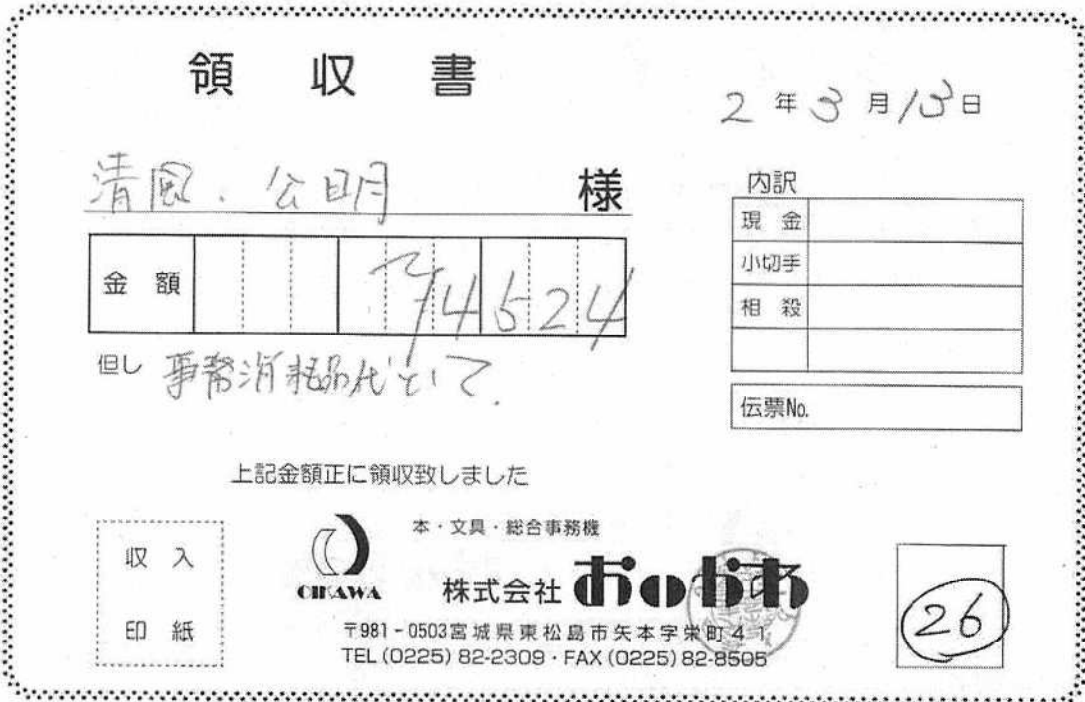 領収書
2年3月13日
清風.公明 様
金額 ¥14524
但し 事務消耗品代として.
内訳
現金
小切手
相殺
伝票No.
上記金額正に領収致しました
収入
印紙
OIKAWA
本・文具・総合事務機
株式会社 おいかわ
〒981-0503宮城県東松島市矢本字栄町41
TEL(0225)82-2309・FAX(0225)82-8505
26